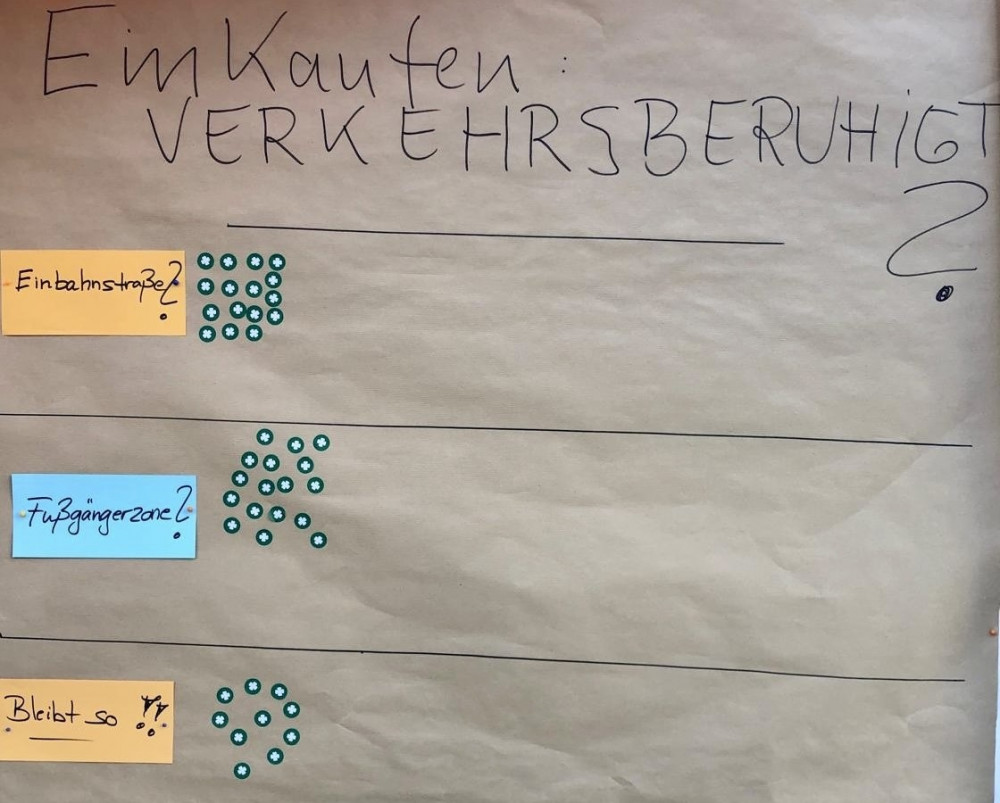 EinKaufen:
VERKEHRSBERUHIGT
?
Einbahnstraße?
Fußgängerzone?
Bleibt so !!